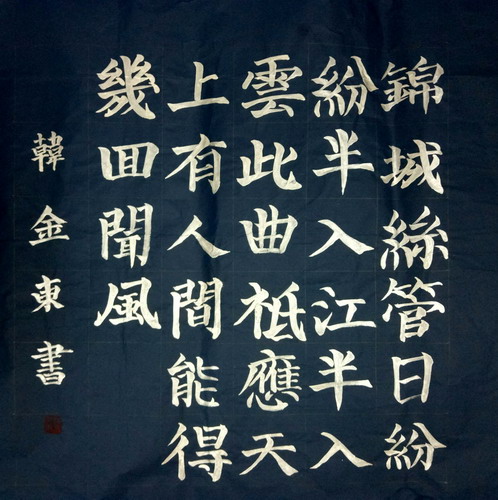 錦城絲管日紛
紛半入江半入
雲此曲祗應天
上有人間能得
幾回聞風
韓金東書